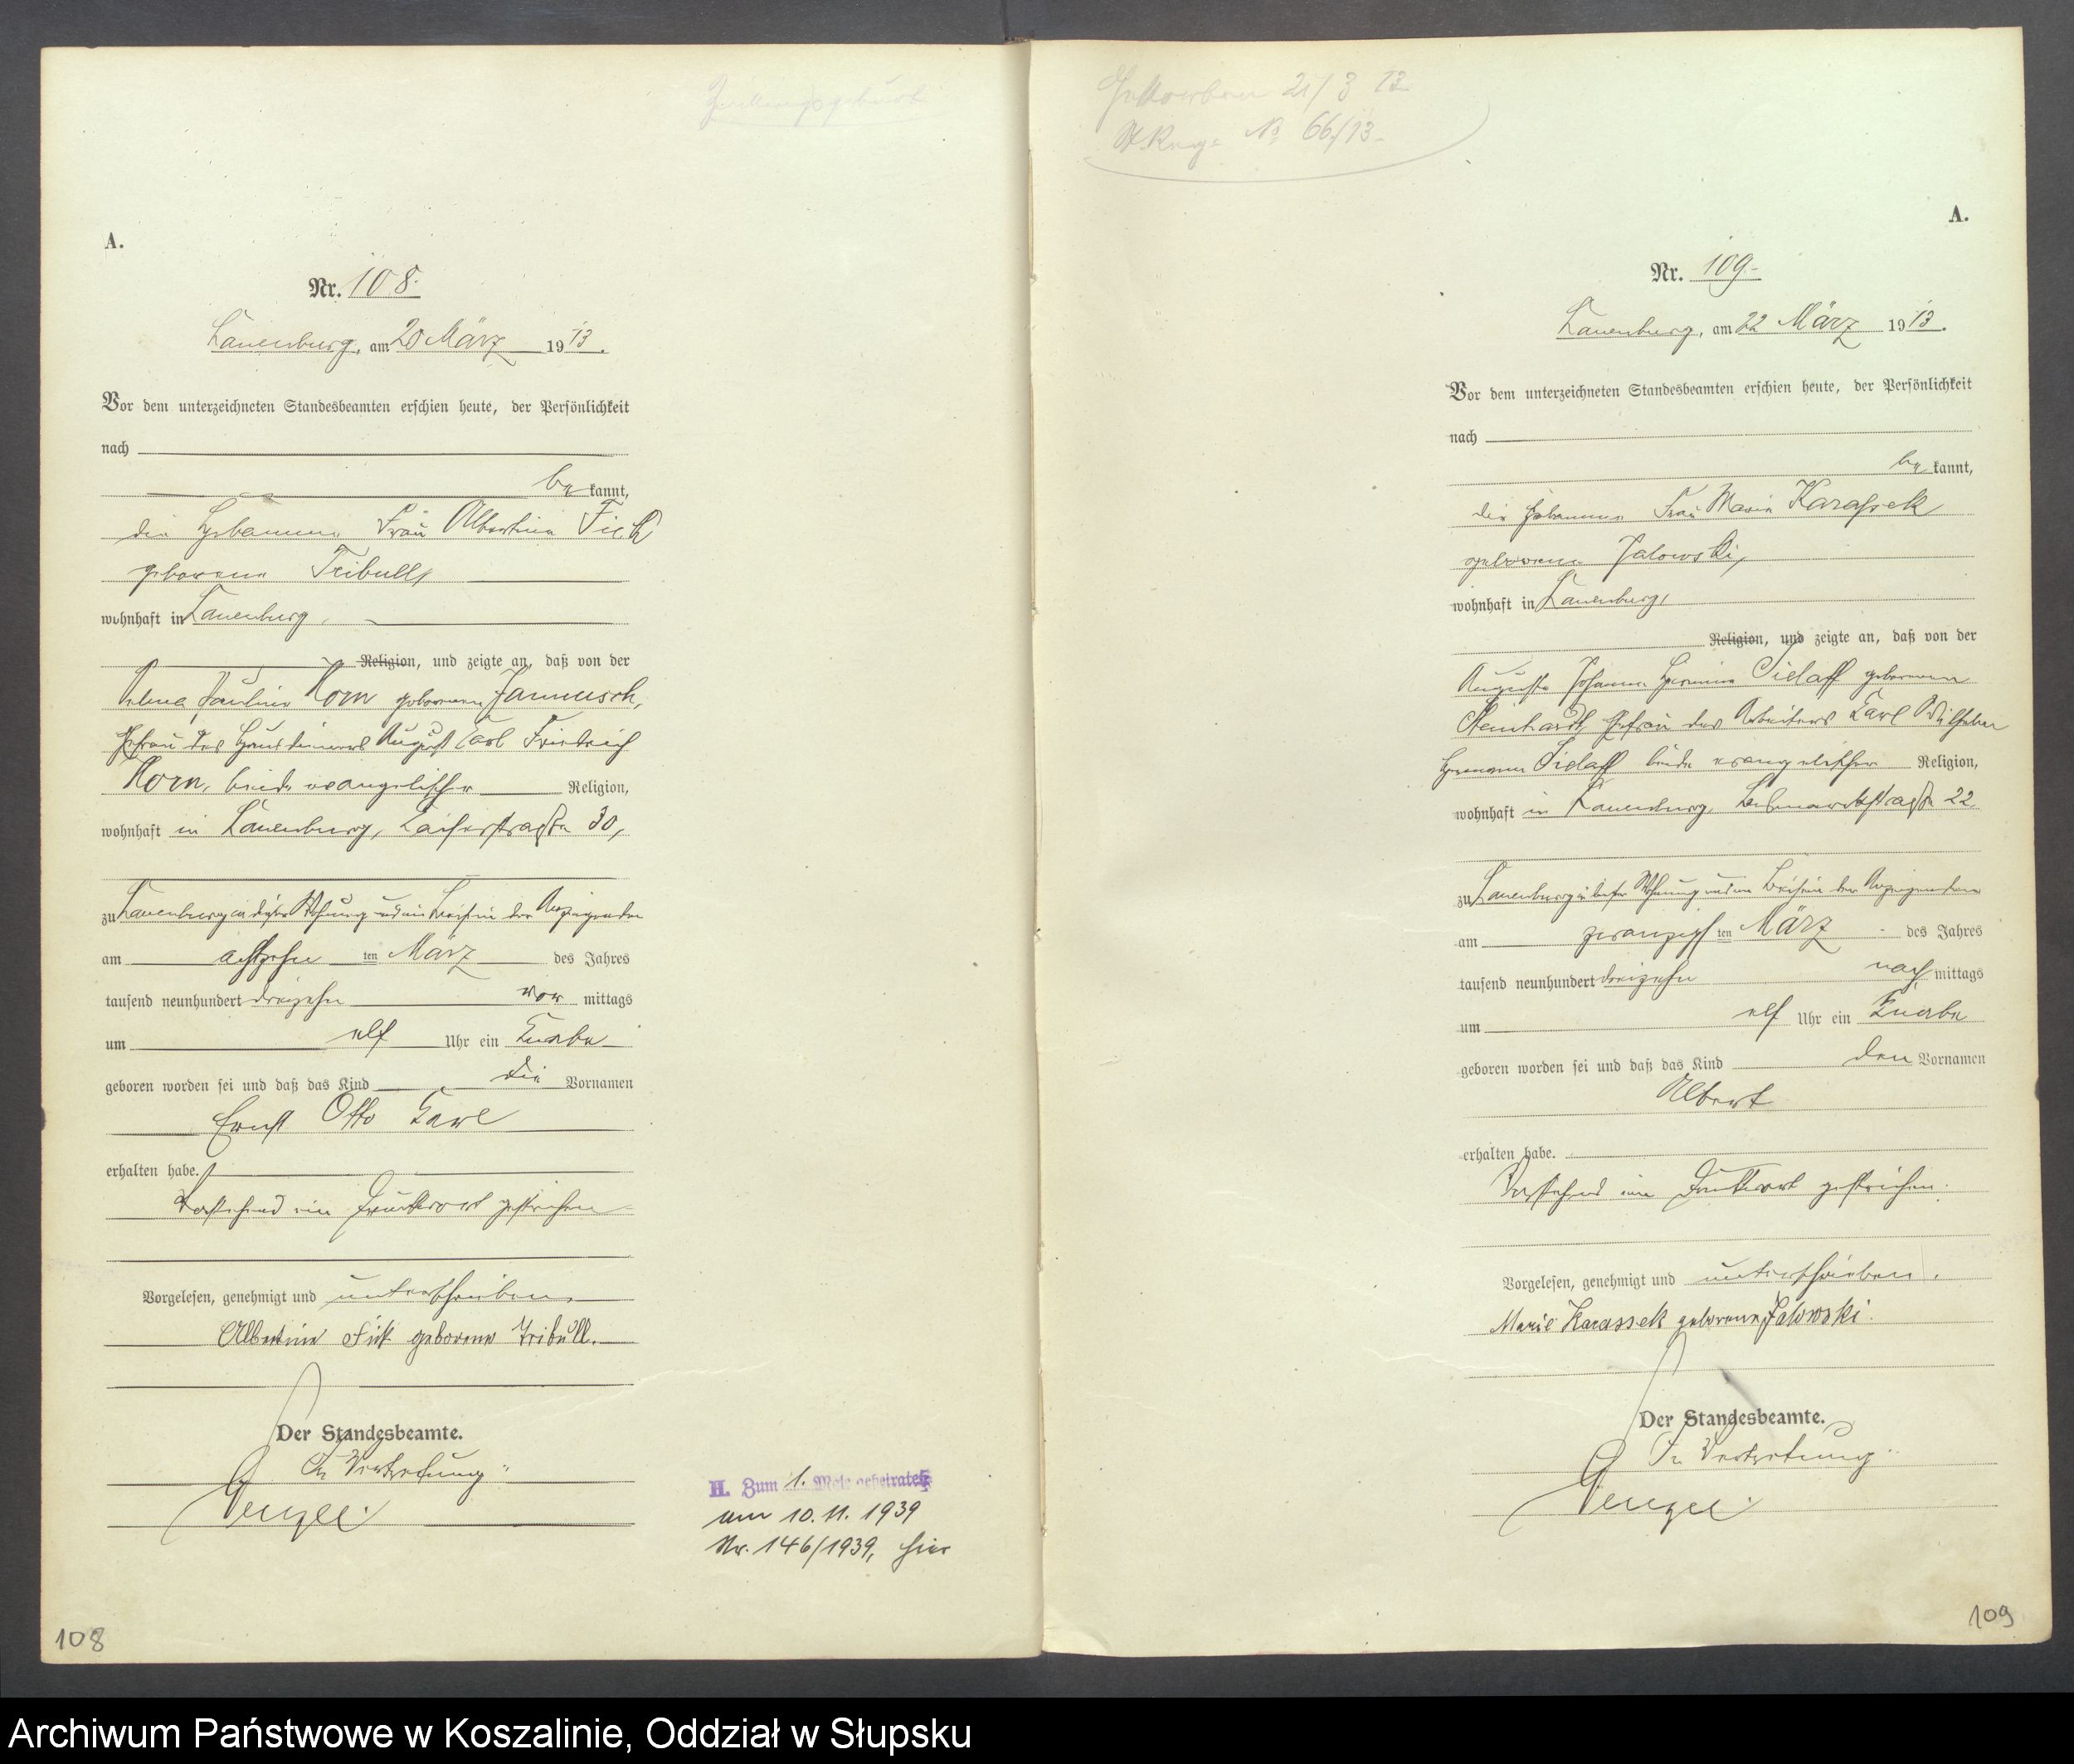 Zwillingsgeburt
A.
Nr. 108.
Lauenburg, am 20 März 1913.
Vor dem unterzeichneten Standesbeamten erschien heute, der Persönlichkeit
nach
be kannt,
die Hebamme Frau Albertine Fick
geborene Tribull,
wohnhaft in Lauenburg,
Religion, und zeigte an, daß von der
Pauline Horn geborenen Jannusch,
Ehefrau des Hausdieners August Carl Friedrich
Horn, beide evangelischer Religion,
wohnhaft in Lauenburg, Kaiserstraße 30,
zu Lauenburg in dieser Wohnung und im Beisein der Anzeigenden
am achtzehn ten März des Jahres
tausend neunhundert dreizehn vor mittags
um elf Uhr ein Knabe
geboren worden sei und daß das Kind die Vornamen
Ernst Otto Karl
erhalten habe.
Vorstehend ein Druckwort gestrichen
Vorgelesen, genehmigt und unterschrieben.
Albertine Fick geborene Tribull.
Der Standesbeamte.
In Vertretung:
H. Zum 1. Male geheiratet
am 10. 11. 1939
Nr. 146/1939, hier
108
Gestorben 21/3 13
No 66/13
A.
Nr. 109.
Lauenburg, am 22 März 1913.
Vor dem unterzeichneten Standesbeamten erschien heute, der Persönlichkeit
nach
be kannt,
die Hebamme Frau Marie Karassek
geborene Jalowski,
wohnhaft in Lauenburg,
Religion, und zeigte an, daß von der
Auguste Johanna Hermine Sielaff geborenen
Steinhardt, Ehefrau des Arbeiters Karl Wilhelm
Hermann Sielaff beide evangelischer Religion,
wohnhaft in Lauenburg, 22
zu Lauenburg in dieser Wohnung und im Beisein der Anzeigenden
am zwanzigs ten März des Jahres
tausend neunhundert dreizehn nach mittags
um elf Uhr ein Knabe
geboren worden sei und daß das Kind den Vornamen
Albert
erhalten habe.
Vorstehend ein Druckwort gestrichen.
Vorgelesen, genehmigt und unterschrieben.
Marie Karassek geborene Jalowski.
Der Standesbeamte.
In Vertretung:
109
Archiwum Państwowe w Koszalinie, Oddział w Słupsku